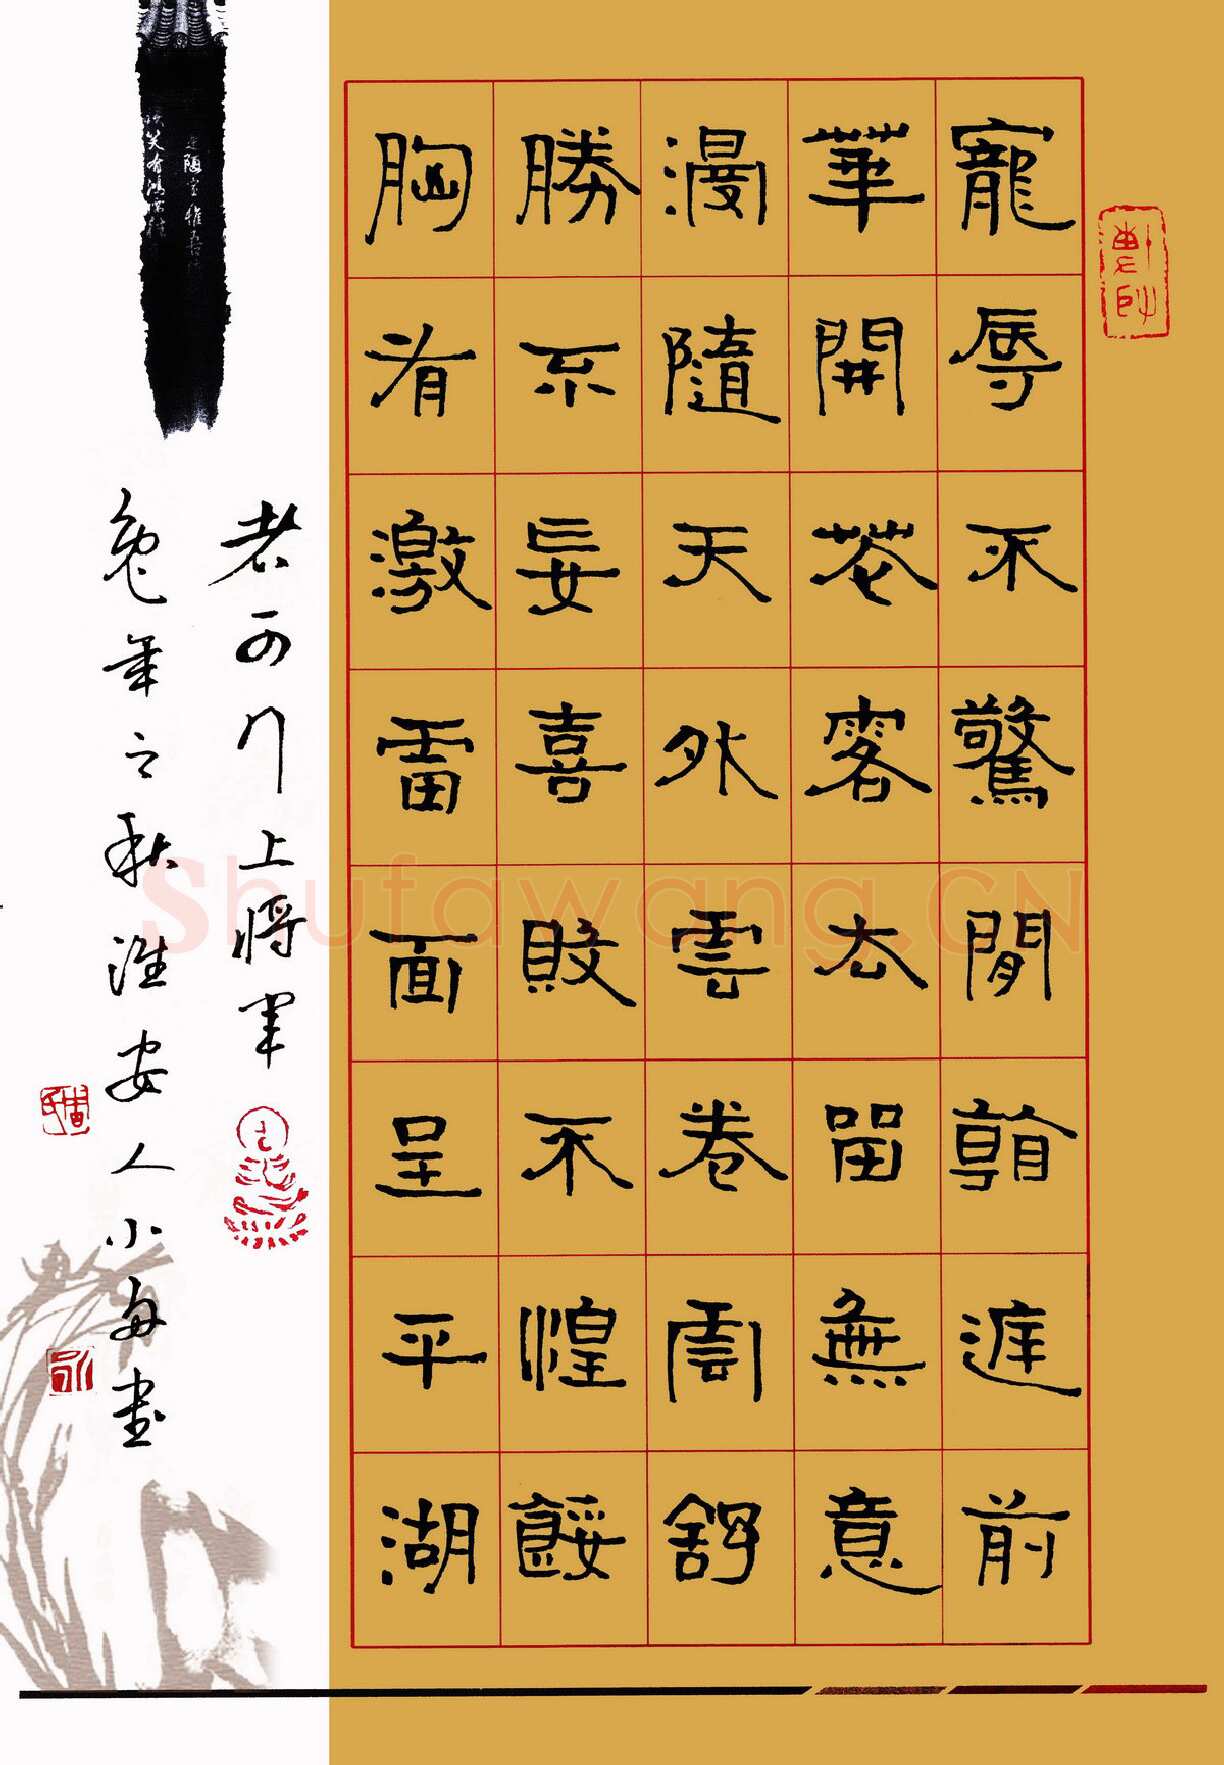 寵辱不驚閒翰遲前
華開花客去留無意
漫隨天外雲卷雲舒
勝不妄喜敗不惶餒
胸有激雷面呈平湖
上將軍
兔年之秋淮安人小舟書
Shufawang.CN